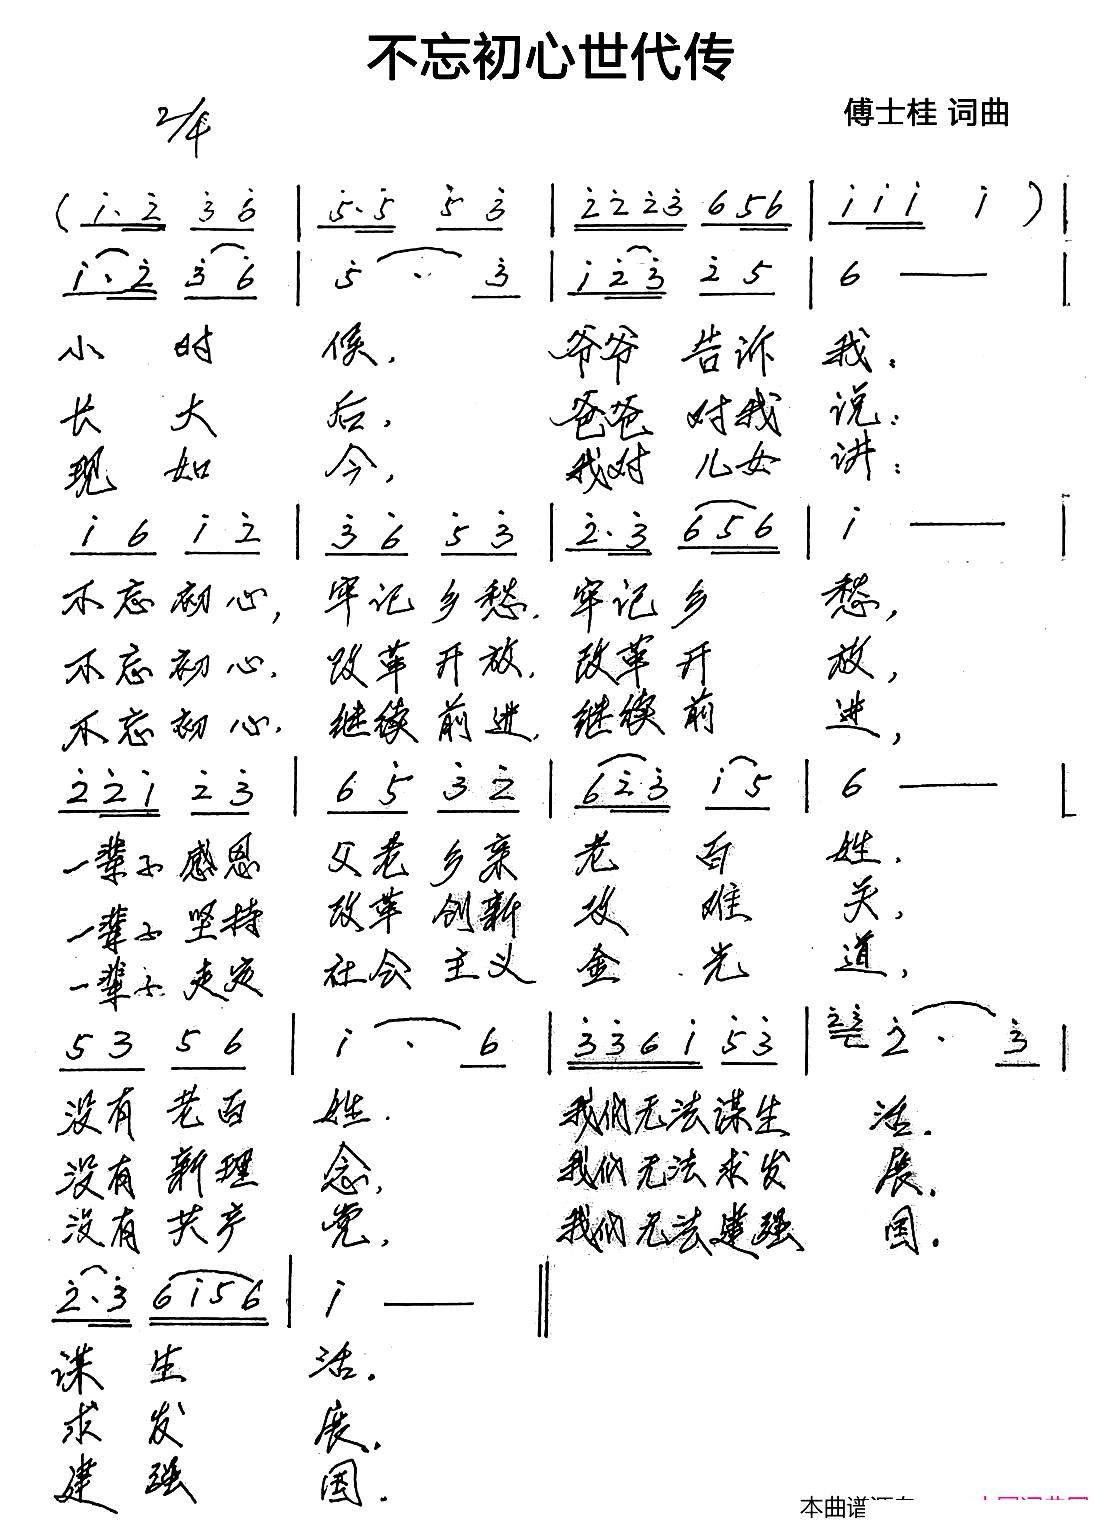 不忘初心世代传
2/4
傅士桂 词曲
( i·2 3 6 | 5·5 5 3 | 2223 656 | i i i i ) |
i·2 3 6 | 5 · 3 | i 23 2 5 | 6 — |
小 时 候, 爷爷 告诉 我:
长 大 后, 爸爸 对我 说:
现 如 今, 我对 儿女 讲:
i 6 i 2 | 3 6 5 3 | 2·3 656 | i — |
不忘初心, 牢记乡愁, 牢记乡 愁,
不忘初心, 改革开放, 改革开 放,
不忘初心, 继续前进, 继续前 进,
22i 23 | 6 5 3 2 | 623 i5 | 6 — |
一辈子感恩 父老乡亲 老 百 姓.
一辈子坚持 改革创新 攻 难 关,
一辈子走定 社会主义 金 光 道,
53 56 | i · 6 | 336i 53 | 23 2 · 3 |
没有老百 姓. 我们无法谋生 活.
没有新理 念, 我们无法求发 展.
没有共产 党, 我们无法建强 国.
2·3 6i56 | i — ‖
谋 生 活.
求 发 展.
建 强 国.
本曲谱源自